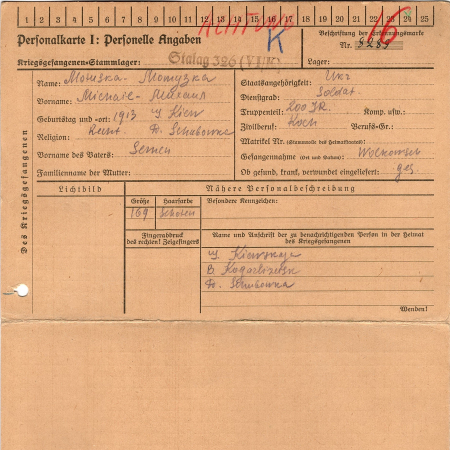 1 2 3 4 5 6 7 8 9 10 11 12 13 14 15 16 17 18 19 20 21 22 23 24 25
ACHTUNG
K
16
Personalkarte I: Personelle Angaben
Kriegsgefangenen-Stammlager: Stalag 326 (VI/K)
Beschriftung der Erkennungsmarke
Nr. 5289
Lager:
Des Kriegsgefangenen
Name:
Vorname: Michail - Михаил
Geburtstag und -ort: 1913 Kiew
Religion:
Vorname des Vaters: Semen
Familienname der Mutter:
Staatsangehörigkeit: Ukr
Dienstgrad: Soldat.
Truppenteil: 200 JR. Komp. usw.:
Zivilberuf: Koch Berufs-Gr.:
Matrikel Nr. (Stammrolle des Heimatstaates):
Gefangennahme (Ort und Datum):
Ob gesund, krank, verwundet eingeliefert: ges.
Lichtbild
Nähere Personalbeschreibung
Größe
Haarfarbe
Besondere Kennzeichen:
169
Fingerabdruck
des rechten! Zeigefingers
Name und Anschrift der zu benachrichtigenden Person in der Heimat
des Kriegsgefangenen
Wenden!